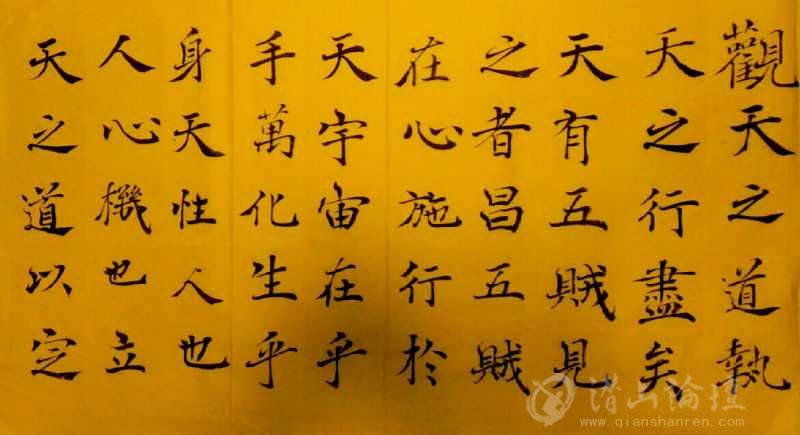 觀天之道執
天之行盡矣
天有五賊見
之者昌五賊
在心施行於
天宇宙在乎
手萬化生乎
身天性人也
人心機也立
天之道以定
潜山論壇
www.qianshanren.com